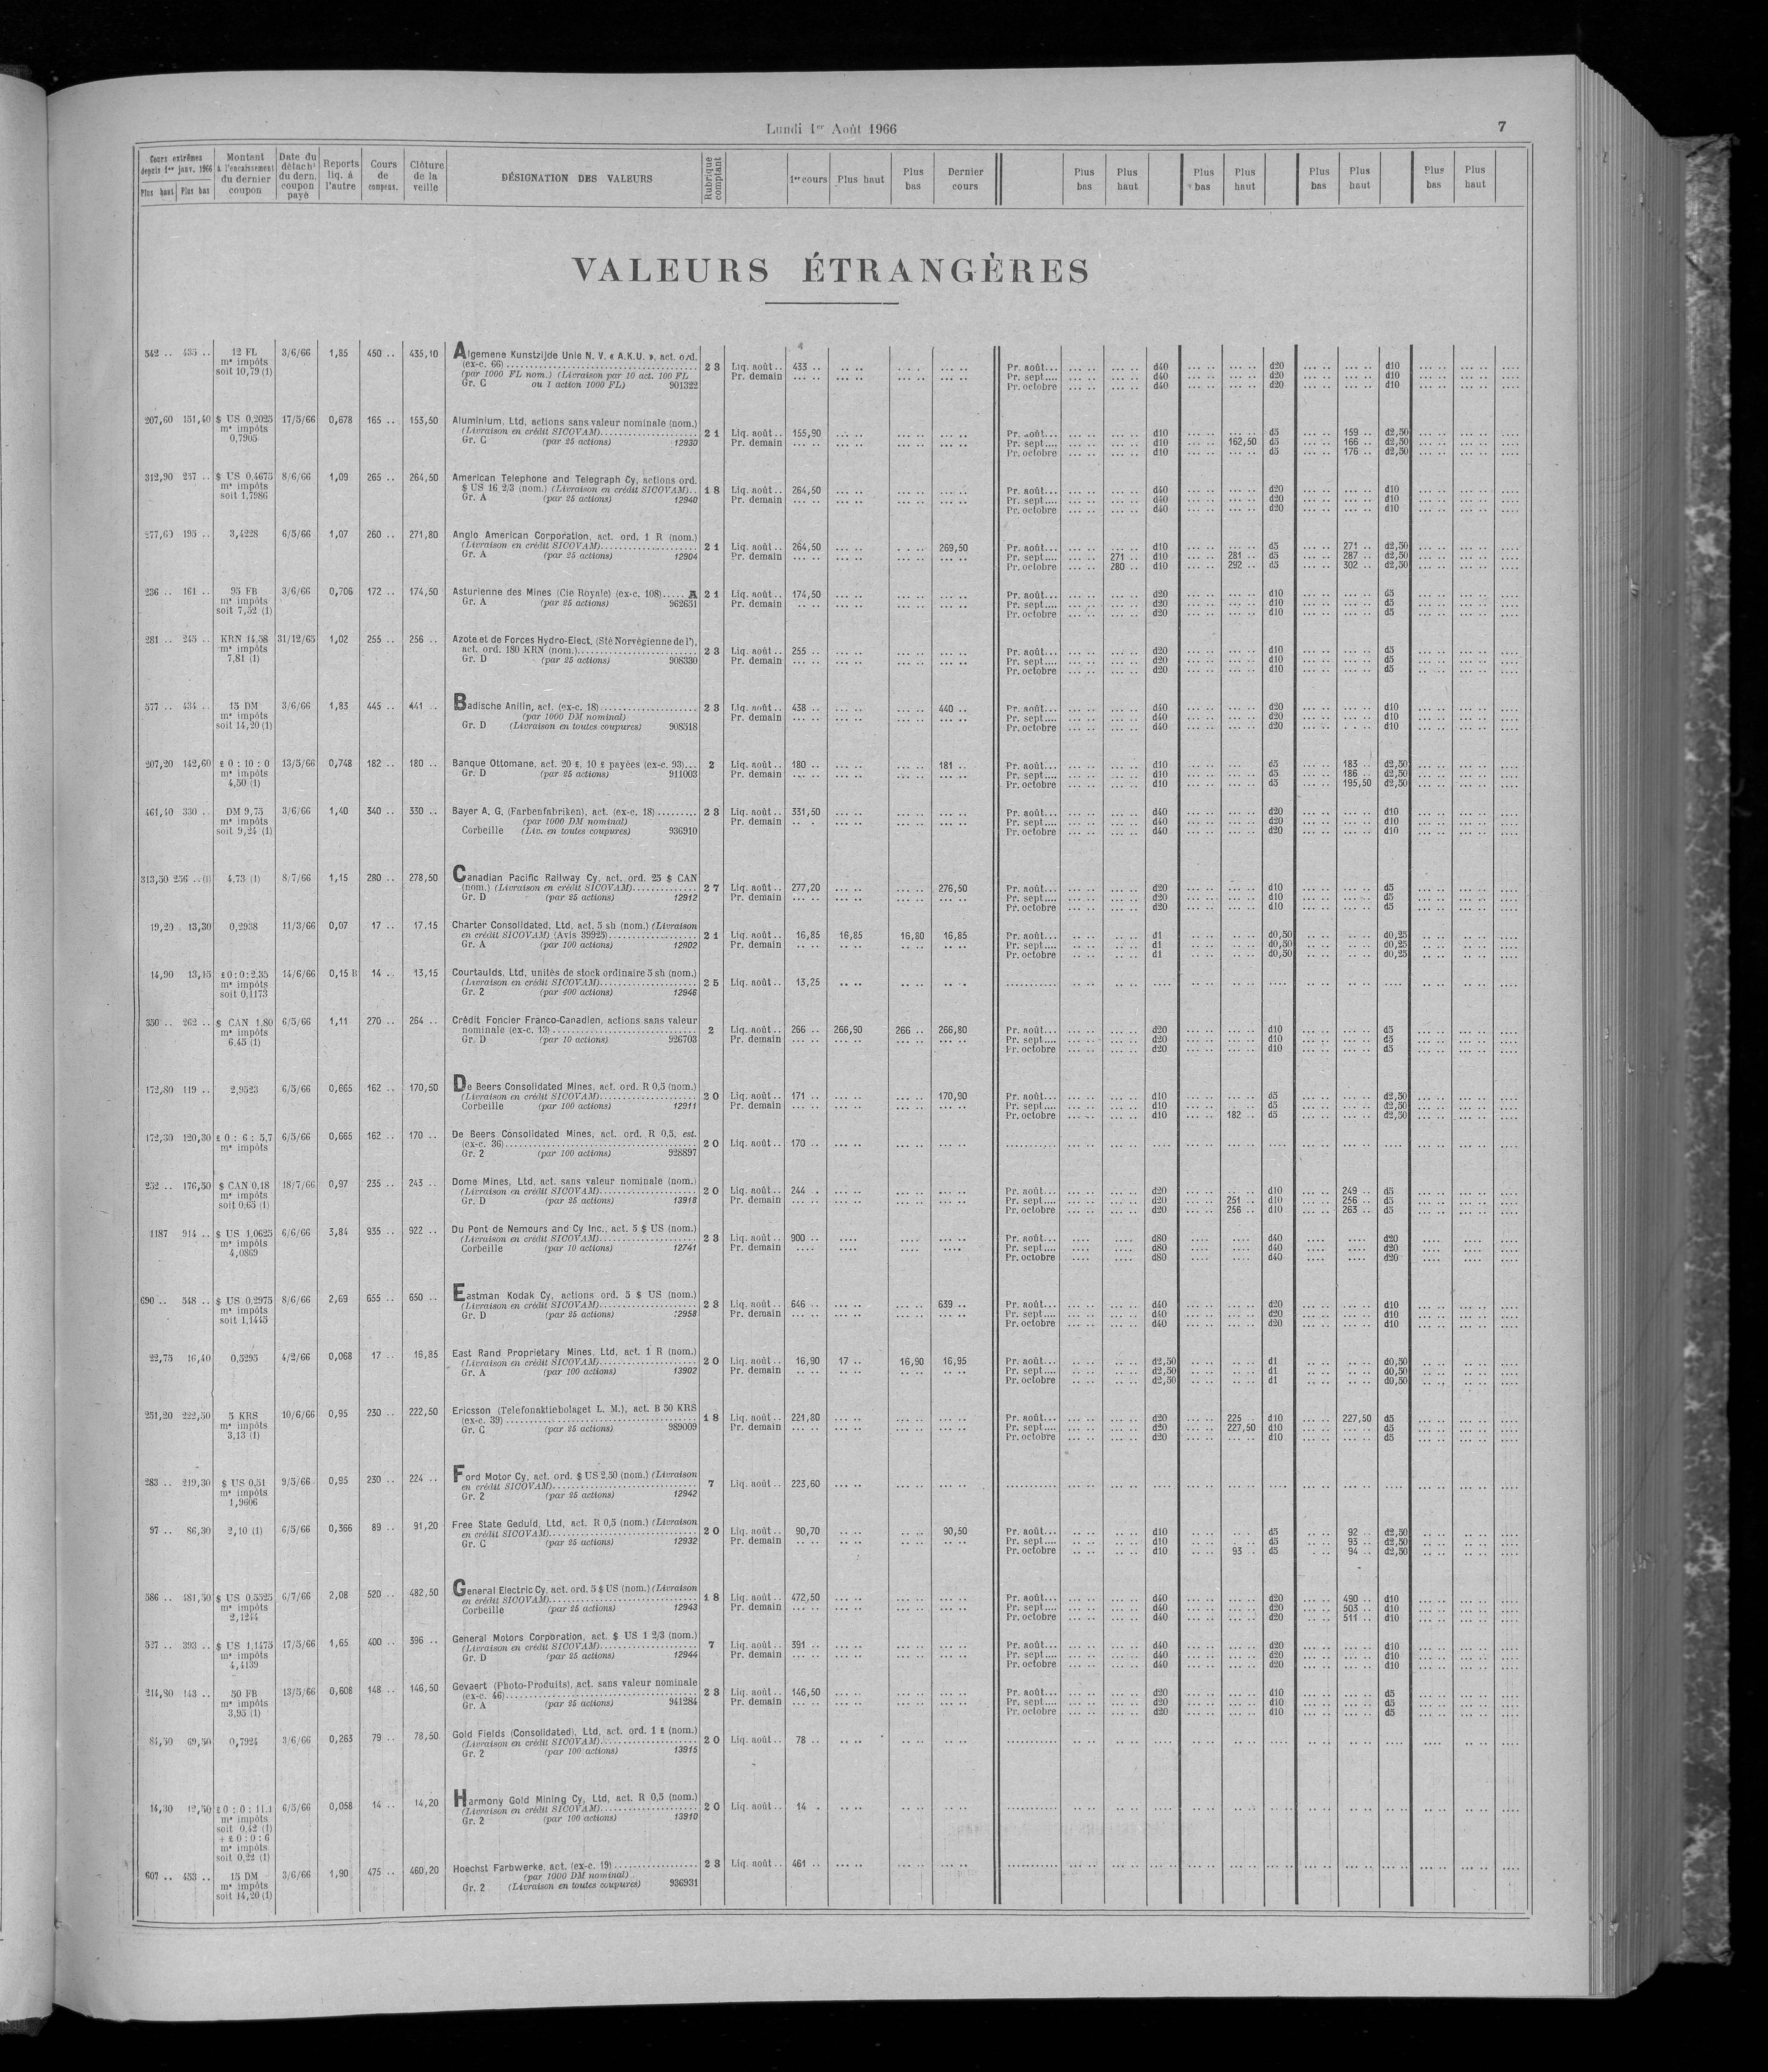 Lundi 1er Août 1966
7
Cours extrêmes depuis 1er janv. 1966 Plus haut Plus bas | Montant à l'encaissement du dernier coupon | Date du détacht du dern. coupon payé | Reports liq. à l'autre | Cours de compens. | Clôture de la veille | DÉSIGNATION DES VALEURS | Rubrique comptant | 1er cours | Plus haut | Plus bas | Dernier cours | Plus bas | Plus haut | Plus bas | Plus haut | Plus bas | Plus haut | Plus bas | Plus haut
VALEURS ÉTRANGÈRES
542 .. 435 .. 12 FL 3/6/66 1,85 450 .. 435,10 Algemene Kunstzijde Unie N. V. « A.K.U. », act. ord.
m* impôts (ex-c. 66) 23 Liq. août.. 433 .. Pr. août... d40 d20 d10
soit 10,79 (1) (par 1000 FL nom.) (Livraison par 10 act. 100 FL Pr. demain Pr. sept.... d40 d20 d10
Gr. C ou 1 action 1000 FL) 901322 Pr. octobre d40 d20 d10
207,60 151,40 $ US 0,2025 17/5/66 0,678 165 .. 153,50 Aluminium, Ltd, actions sans valeur nominale (nom.)
m* impôts (Livraison en crédit SICOVAM) 21 Liq. août.. 155,90 Pr. août... d10 d5 159 .. d2,50
0,7905 Gr. C (par 25 actions) 12930 Pr. demain Pr. sept.... d10 162,50 d5 166 .. d2,50
Pr. octobre d10 d5 176 .. d2,50
312,90 257 .. $ US 0,4675 8/6/66 1,09 265 .. 264,50 American Telephone and Telegraph Cy, actions ord.
m* impôts $ US 16 2/3 (nom.) (Livraison en crédit SICOVAM).. 18 Liq. août.. 264,50 Pr. août... d40 d20 d10
soit 1,7986 Gr. A (par 25 actions) 12940 Pr. demain Pr. sept.... d40 d20 d10
Pr. octobre d40 d20 d10
277,60 195 .. 3,4228 6/5/66 1,07 260 .. 271,80 Anglo American Corporation, act. ord. 1 R (nom.)
(Livraison en crédit SICOVAM) 21 Liq. août.. 264,50 269,50 Pr. août... d10 d5 271 .. d2,50
Gr. A (par 25 actions) 12904 Pr. demain Pr. sept.... 271 .. d10 281 .. d5 287 .. d2,50
Pr. octobre 280 .. d10 292 .. d5 302 .. d2,50
236 .. 161 .. 95 FB 3/6/66 0,706 172 .. 174,50 Asturienne des Mines (Cie Royale) (ex-c. 108)..... A 21 Liq. août.. 174,50 Pr. août... d20 d10 d5
m* impôts Gr. A (par 25 actions) 962651 Pr. demain Pr. sept.... d20 d10 d5
soit 7,52 (1) Pr. octobre d20 d10 d5
281 .. 245 .. KRN 14,58 31/12/65 1,02 255 .. 256 .. Azote et de Forces Hydro-Elect. (Sté Norvégienne de l'),
m* impôts act. ord. 180 KRN (nom.) 23 Liq. août.. 255 .. Pr. août... d20 d10 d5
7,81 (1) Gr. D (par 25 actions) 908330 Pr. demain Pr. sept.... d20 d10 d5
Pr. octobre d20 d10 d5
577 .. 434 .. 15 DM 3/6/66 1,83 445 .. 441 .. Badische Anilin, act. (ex-c. 18) 23 Liq. août.. 438 .. 440 .. Pr. août... d40 d20 d10
m* impôts (par 1000 DM nominal) Pr. demain Pr. sept.... d40 d20 d10
soit 14,20 (1) Gr. D (Livraison en toutes coupures) 908518 Pr. octobre d40 d20 d10
207,20 142,60 £ 0 : 10 : 0 13/5/66 0,748 182 .. 180 .. Banque Ottomane, act. 20 £, 10 £ payées (ex-c. 93)... 2 Liq. août.. 180 .. 181 .. Pr. août... d10 d5 183 .. d2,50
m* impôts Gr. D (par 25 actions) 911003 Pr. demain Pr. sept.... d10 d5 186 .. d2,50
4,50 (1) Pr. octobre d10 d5 195,50 d2,50
461,40 330 .. DM 9,75 3/6/66 1,40 340 .. 330 .. Bayer A. G. (Farbenfabriken), act. (ex-c. 18) 23 Liq. août.. 331,50 Pr. août... d40 d20 d10
m* impôts (par 1000 DM nominal) Pr. demain Pr. sept.... d40 d20 d10
soit 9,24 (1) Corbeille (Liv. en toutes coupures) 936910 Pr. octobre d40 d20 d10
313,50 256 .. (1) 4,73 (1) 8/7/66 1,15 280 .. 278,50 Canadian Pacific Railway Cy, act. ord. 25 $ CAN
(nom.) (Livraison en crédit SICOVAM) 27 Liq. août.. 277,20 276,50 Pr. août... d20 d10 d5
Gr. D (par 25 actions) 12912 Pr. demain Pr. sept.... d20 d10 d5
Pr. octobre d20 d10 d5
19,20 13,30 0,2938 11/3/66 0,07 17 .. 17.15 Charter Consolidated, Ltd, act. 5 sh (nom.) (Livraison
en crédit SICOVAM) (Avis 39925) 21 Liq. août.. 16,85 16,85 16,80 16,85 Pr. août... d1 d0,50 d0,25
Gr. A (par 100 actions) 12902 Pr. demain Pr. sept.... d1 d0,50 d0,25
Pr. octobre d1 d0,50 d0,25
14,90 13,15 £0:0:2,35 14/6/66 0,15 B 14 .. 13,15 Courtaulds, Ltd, unités de stock ordinaire 5 sh (nom.)
m* impôts (Livraison en crédit SICOVAM) 25 Liq. août.. 13,25
soit 0,1173 Gr. 2 (par 400 actions) 12946
350 .. 262 .. $ CAN 1,80 6/5/66 1,11 270 .. 264 .. Crédit Foncier Franco-Canadien, actions sans valeur
m* impôts nominale (ex-c. 13) 2 Liq. août.. 266 .. 266,90 266 .. 266,80 Pr. août... d20 d10 d5
6,45 (1) Gr. D (par 10 actions) 926703 Pr. demain Pr. sept.... d20 d10 d5
Pr. octobre d20 d10 d5
172,80 119 .. 2,9523 6/5/66 0,665 162 .. 170,50 De Beers Consolidated Mines, act. ord. R 0,5 (nom.)
(Livraison en crédit SICOVAM) 20 Liq. août.. 171 .. 170,90 Pr. août... d10 d5 d2,50
Corbeille (par 100 actions) 12911 Pr. demain Pr. sept.... d10 d5 d2,50
Pr. octobre d10 182 .. d5 d2,50
172,30 120,30 £ 0 : 6 : 5,7 6/5/66 0,665 162 .. 170 .. De Beers Consolidated Mines, act. ord. R 0,5, est.
m* impôts (ex-c. 36) 20 Liq. août.. 170 ..
Gr. 2 (par 100 actions) 928897
252 .. 176,50 $ CAN 0,18 18/7/66 0,97 235 .. 243 .. Dome Mines, Ltd, act. sans valeur nominale (nom.)
m* impôts (Livraison en crédit SICOVAM) 20 Liq. août.. 244 .. Pr. août... d20 d10 249 .. d5
soit 0,65 (1) Gr. D (par 25 actions) 13918 Pr. demain Pr. sept.... d20 251 .. d10 256 .. d5
Pr. octobre d20 256 .. d10 263 .. d5
1187 914 .. $ US 1,0625 6/6/66 3,84 935 .. 922 .. Du Pont de Nemours and Cy Inc., act. 5 $ US (nom.)
m* impôts (Livraison en crédit SICOVAM) 23 Liq. août.. 900 .. Pr. août... d80 d40 d20
4,0869 Corbeille (par 10 actions) 12741 Pr. demain Pr. sept.... d80 d40 d20
Pr. octobre d80 d40 d20
690 .. 548 .. $ US 0,2975 8/6/66 2,69 655 .. 650 .. Eastman Kodak Cy, actions ord. 5 $ US (nom.)
m* impôts (Livraison en crédit SICOVAM) 23 Liq. août.. 646 .. 639 .. Pr. août... d40 d20 d10
soit 1,1445 Gr. D (par 25 actions) 12958 Pr. demain Pr. sept.... d40 d20 d10
Pr. octobre d40 d20 d10
22,75 16,40 0,5295 4/2/66 0,068 17 .. 16,85 East Rand Proprietary Mines, Ltd, act. 1 R (nom.)
(Livraison en crédit SICOVAM) 20 Liq. août.. 16,90 17 .. 16,90 16,95 Pr. août... d2,50 d1 d0,50
Gr. A (par 100 actions) 13902 Pr. demain Pr. sept.... d2,50 d1 d0,50
Pr. octobre d2,50 d1 d0,50
251,20 222,50 5 KRS 10/6/66 0,95 230 .. 222,50 Ericsson (Telefonaktiebolaget L. M.), act. B 50 KRS
m* impôts (ex-c. 39) 18 Liq. août.. 221,80 Pr. août... d20 225 .. d10 227,50 d5
3,13 (1) Gr. C (par 25 actions) 989009 Pr. demain Pr. sept.... d20 227,50 d10 d5
Pr. octobre d20 d10 d5
283 .. 219,30 $ US 0,51 9/5/66 0,95 230 .. 224 .. Ford Motor Cy, act. ord. $ US 2,50 (nom.) (Livraison
m* impôts en crédit SICOVAM) 7 Liq. août.. 223,60
1,9606 Gr. 2 (par 25 actions) 12942
97 .. 86,30 2,10 (1) 6/5/66 0,366 89 .. 91,20 Free State Geduld, Ltd, act. R 0,5 (nom.) (Livraison
en crédit SICOVAM) 20 Liq. août.. 90,70 90,50 Pr. août... d10 d5 92 .. d2,50
Gr. C (par 25 actions) 12932 Pr. demain Pr. sept.... d10 d5 93 .. d2,50
Pr. octobre d10 93 .. d5 94 .. d2,50
586 .. 481,50 $ US 0,5525 6/7/66 2,08 520 .. 482,50 General Electric Cy, act. ord. 5 $ US (nom.) (Livraison
m* impôts en crédit SICOVAM) 18 Liq. août.. 472,50 Pr. août... d40 d20 490 .. d10
2,1244 Corbeille (par 25 actions) 12943 Pr. demain Pr. sept.... d40 d20 503 .. d10
Pr. octobre d40 d20 511 .. d10
527 .. 393 .. $ US 1,1475 17/5/66 1,65 400 .. 396 .. General Motors Corporation, act. $ US 1 2/3 (nom.)
m* impôts (Livraison en crédit SICOVAM) 7 Liq. août.. 391 .. Pr. août... d40 d20 d10
4,4139 Gr. D (par 25 actions) 12944 Pr. demain Pr. sept.... d40 d20 d10
Pr. octobre d40 d20 d10
214,80 143 .. 50 FB 13/5/66 0,608 148 .. 146,50 Gevaert (Photo-Produits), act. sans valeur nominale
m* impôts (ex-c. 46) 23 Liq. août.. 146,50 Pr. août... d20 d10 d5
3,95 (1) Gr. A (par 25 actions) 941284 Pr. demain Pr. sept.... d20 d10 d5
Pr. octobre d20 d10 d5
84,50 69,50 0,7924 3/6/66 0,263 79 .. 78,50 Gold Fields (Consolidated), Ltd, act. ord. 1 £ (nom.)
(Livraison en crédit SICOVAM) 20 Liq. août.. 78 ..
Gr. 2 (par 100 actions) 13915
14,30 12,50 £0 : 0 : 11.1 6/5/66 0,058 14 .. 14,20 Harmony Gold Mining Cy, Ltd, act. R 0,5 (nom.)
m* impôts (Livraison en crédit SICOVAM) 20 Liq. août.. 14 ..
soit 0,42 (1) Gr. 2 (par 100 actions) 13910
+ £ 0 : 0 : 6
m* impôts
soit 0,22 (1)
607 .. 453 .. 15 DM 3/6/66 1,90 475 .. 460,20 Hoechst Farbwerke, act. (ex-c. 19) 23 Liq. août.. 461 ..
m* impôts (par 1000 DM nominal)
soit 14,20 (1) Gr. 2 (Livraison en toutes coupures) 936931